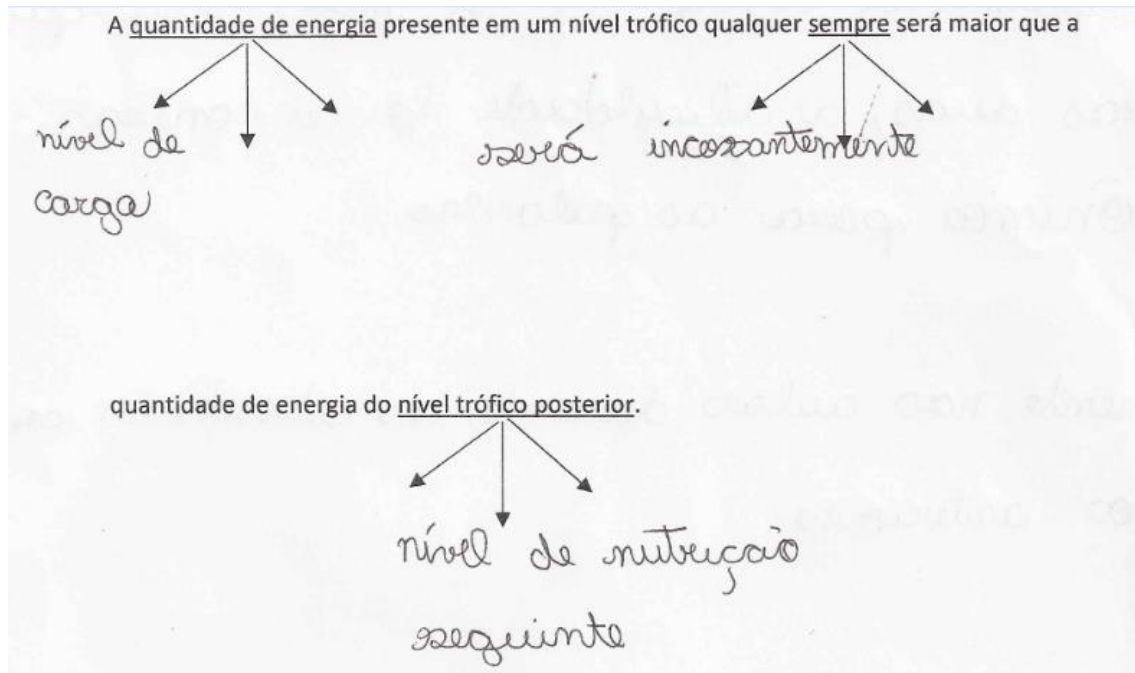 A quantidade de energia presente em um nível trófico qualquer sempre será maior que a
nível de
carga
será incexantemente
quantidade de energia do nível trófico posterior.
nível de nutrição
seguinte